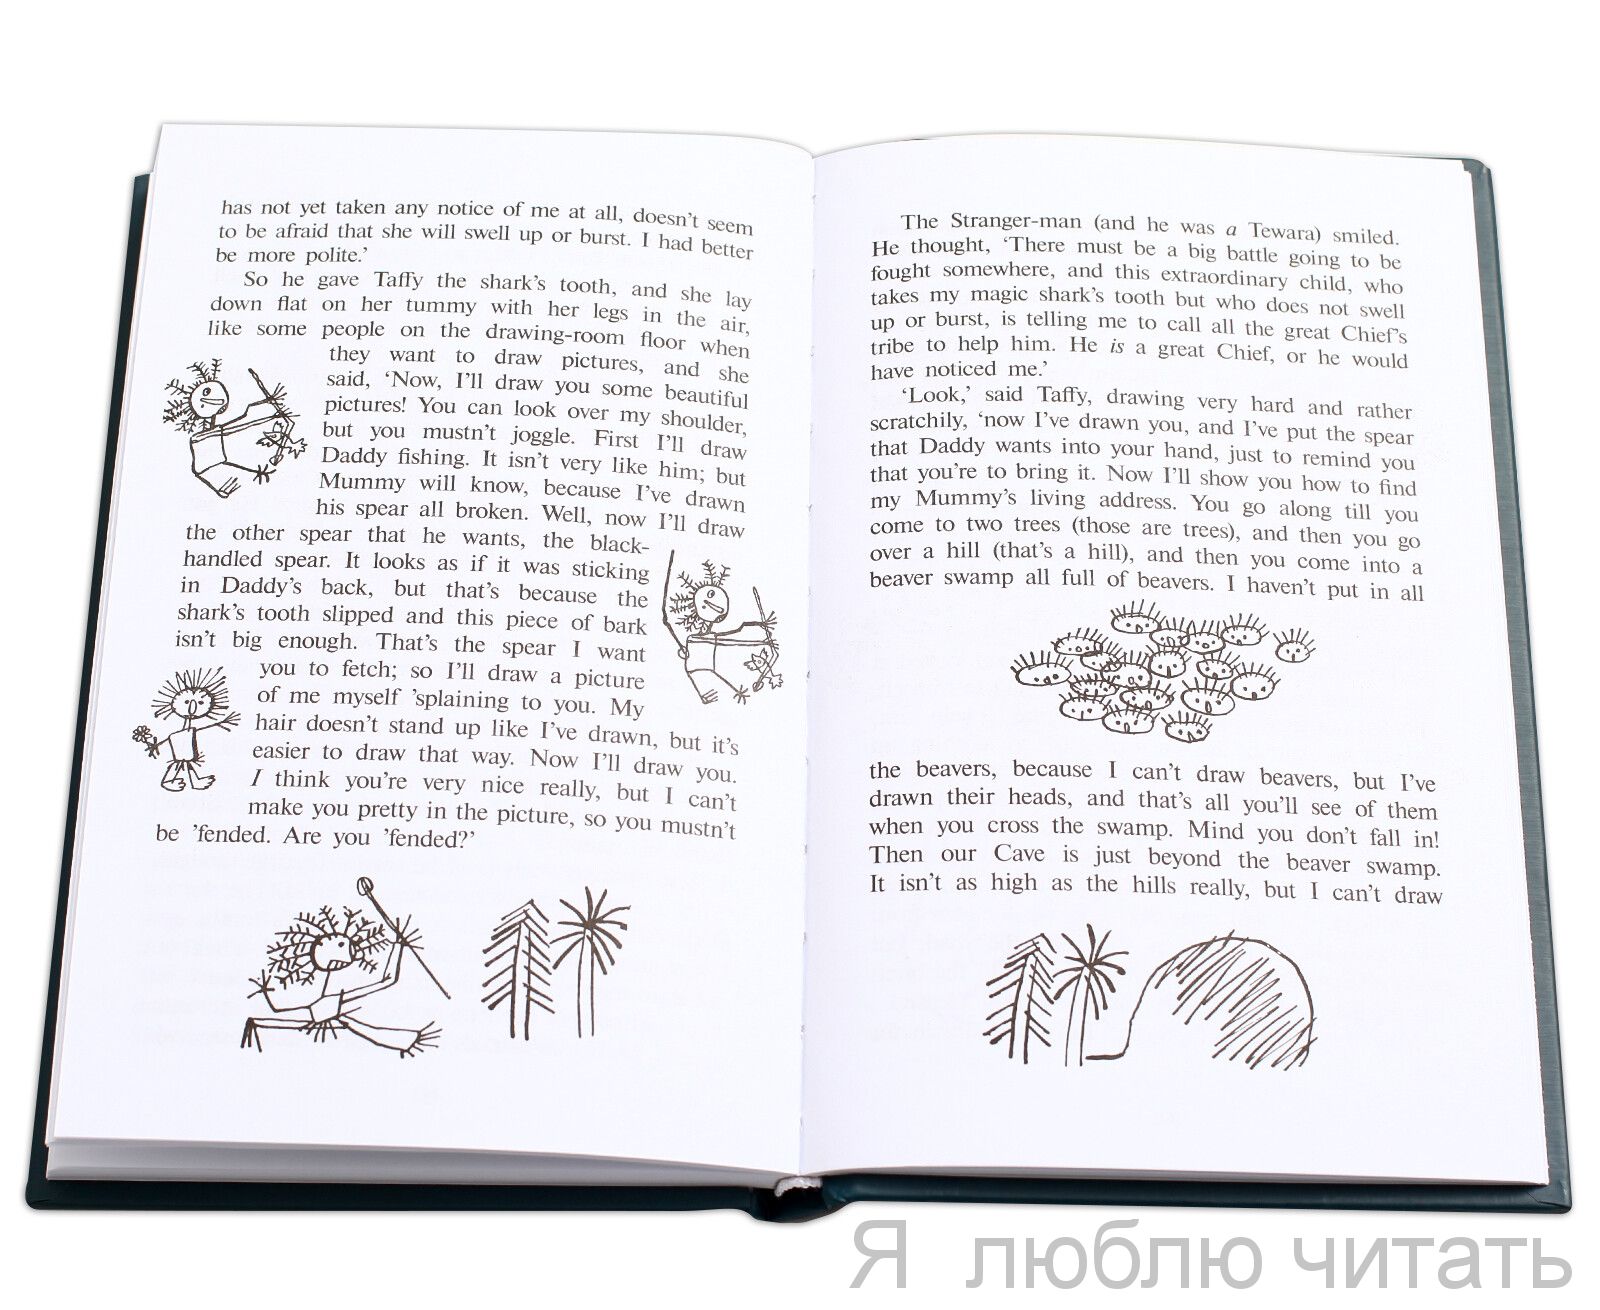 has not yet taken any notice of me at all, doesn't seem
to be afraid that she will swell up or burst. I had better
be more polite.'
So he gave Taffy the shark's tooth, and she lay
down flat on her tummy with her legs in the air,
like some people on the drawing-room floor when
they want to draw pictures, and she
said, 'Now, I'll draw you some beautiful
pictures! You can look over my shoulder,
but you mustn't joggle. First I'll draw
Daddy fishing. It isn't very like him; but
Mummy will know, because I've drawn
his spear all broken. Well, now I'll draw
the other spear that he wants, the black-
handled spear. It looks as if it was sticking
in Daddy's back, but that's because the
shark's tooth slipped and this piece of bark
isn't big enough. That's the spear I want
you to fetch; so I'll draw a picture
of me myself 'splaining to you. My
hair doesn't stand up like I've drawn, but it's
easier to draw that way. Now I'll draw you.
I think you're very nice really, but I can't
make you pretty in the picture, so you mustn't
be 'fended. Are you 'fended?'
The Stranger-man (and he was a Tewara) smiled.
He thought, 'There must be a big battle going to be
fought somewhere, and this extraordinary child, who
takes my magic shark's tooth but who does not swell
up or burst, is telling me to call all the great Chief's
tribe to help him. He is a great Chief, or he would
have noticed me.'
'Look,' said Taffy, drawing very hard and rather
scratchily, 'now I've drawn you, and I've put the spear
that Daddy wants into your hand, just to remind you
that you're to bring it. Now I'll show you how to find
my Mummy's living address. You go along till you
come to two trees (those are trees), and then you go
over a hill (that's a hill), and then you come into a
beaver swamp all full of beavers. I haven't put in all
the beavers, because I can't draw beavers, but I've
drawn their heads, and that's all you'll see of them
when you cross the swamp. Mind you don't fall in!
Then our Cave is just beyond the beaver swamp.
It isn't as high as the hills really, but I can't draw
Я люблю читать